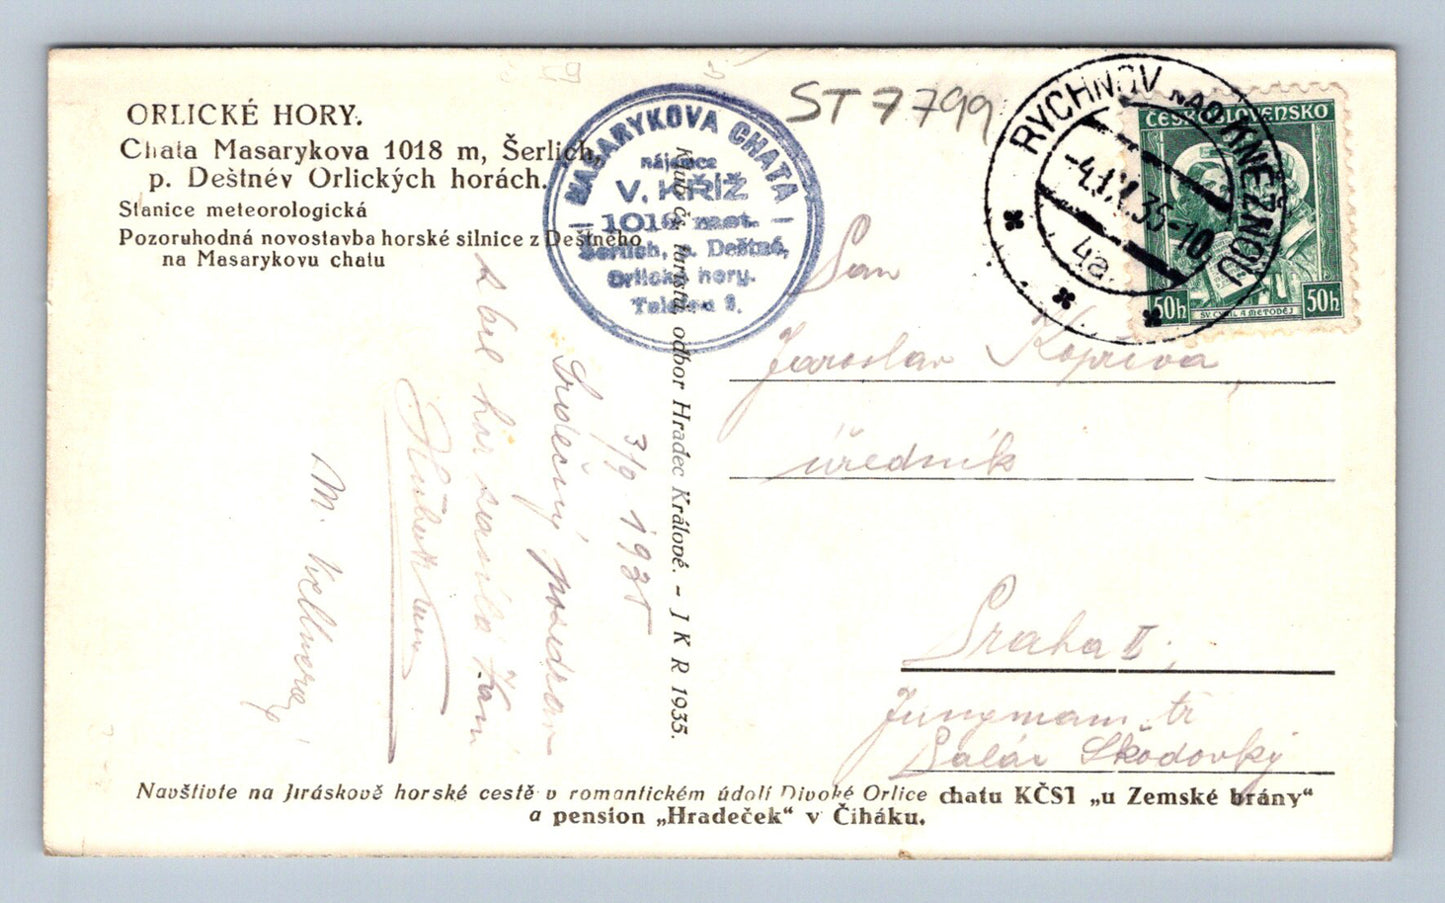 ORLICKÉ HORY.
Chata Masarykova 1018 m, Šerlich,
p. Deštnév Orlických horách.
Stanice meteorologická
Pozoruhodná novostavba horské silnice z Deštného
na Masarykovu chatu
MASARYKOVA CHATA
nájemce
V. KŘÍŽ
1019 met.
Šerlich, p. Deštné,
Orlické hory.
Telefon 2.
ST 7799
RYCHNOV NAD KNĚŽNOU
-4.IX.35-10
4a.
ČESKOSLOVENSKO
50h
SV. CYRIL A METODĚJ
50h
Klub čs. turistů, odbor Hradec Králové. - J K R 1935.
3/9 1935
Srdečný pozdrav
z hor
M.
Pan
Jaroslav Kopřiva
úředník
Praha II.
Jungmam. tř
Palác Škodovky
Navštivte na Jiráskově horské cestě v romantickém údolí Divoké Orlice chatu KČST „u Zemské brány“
a pension „Hradeček“ v Čiháku.